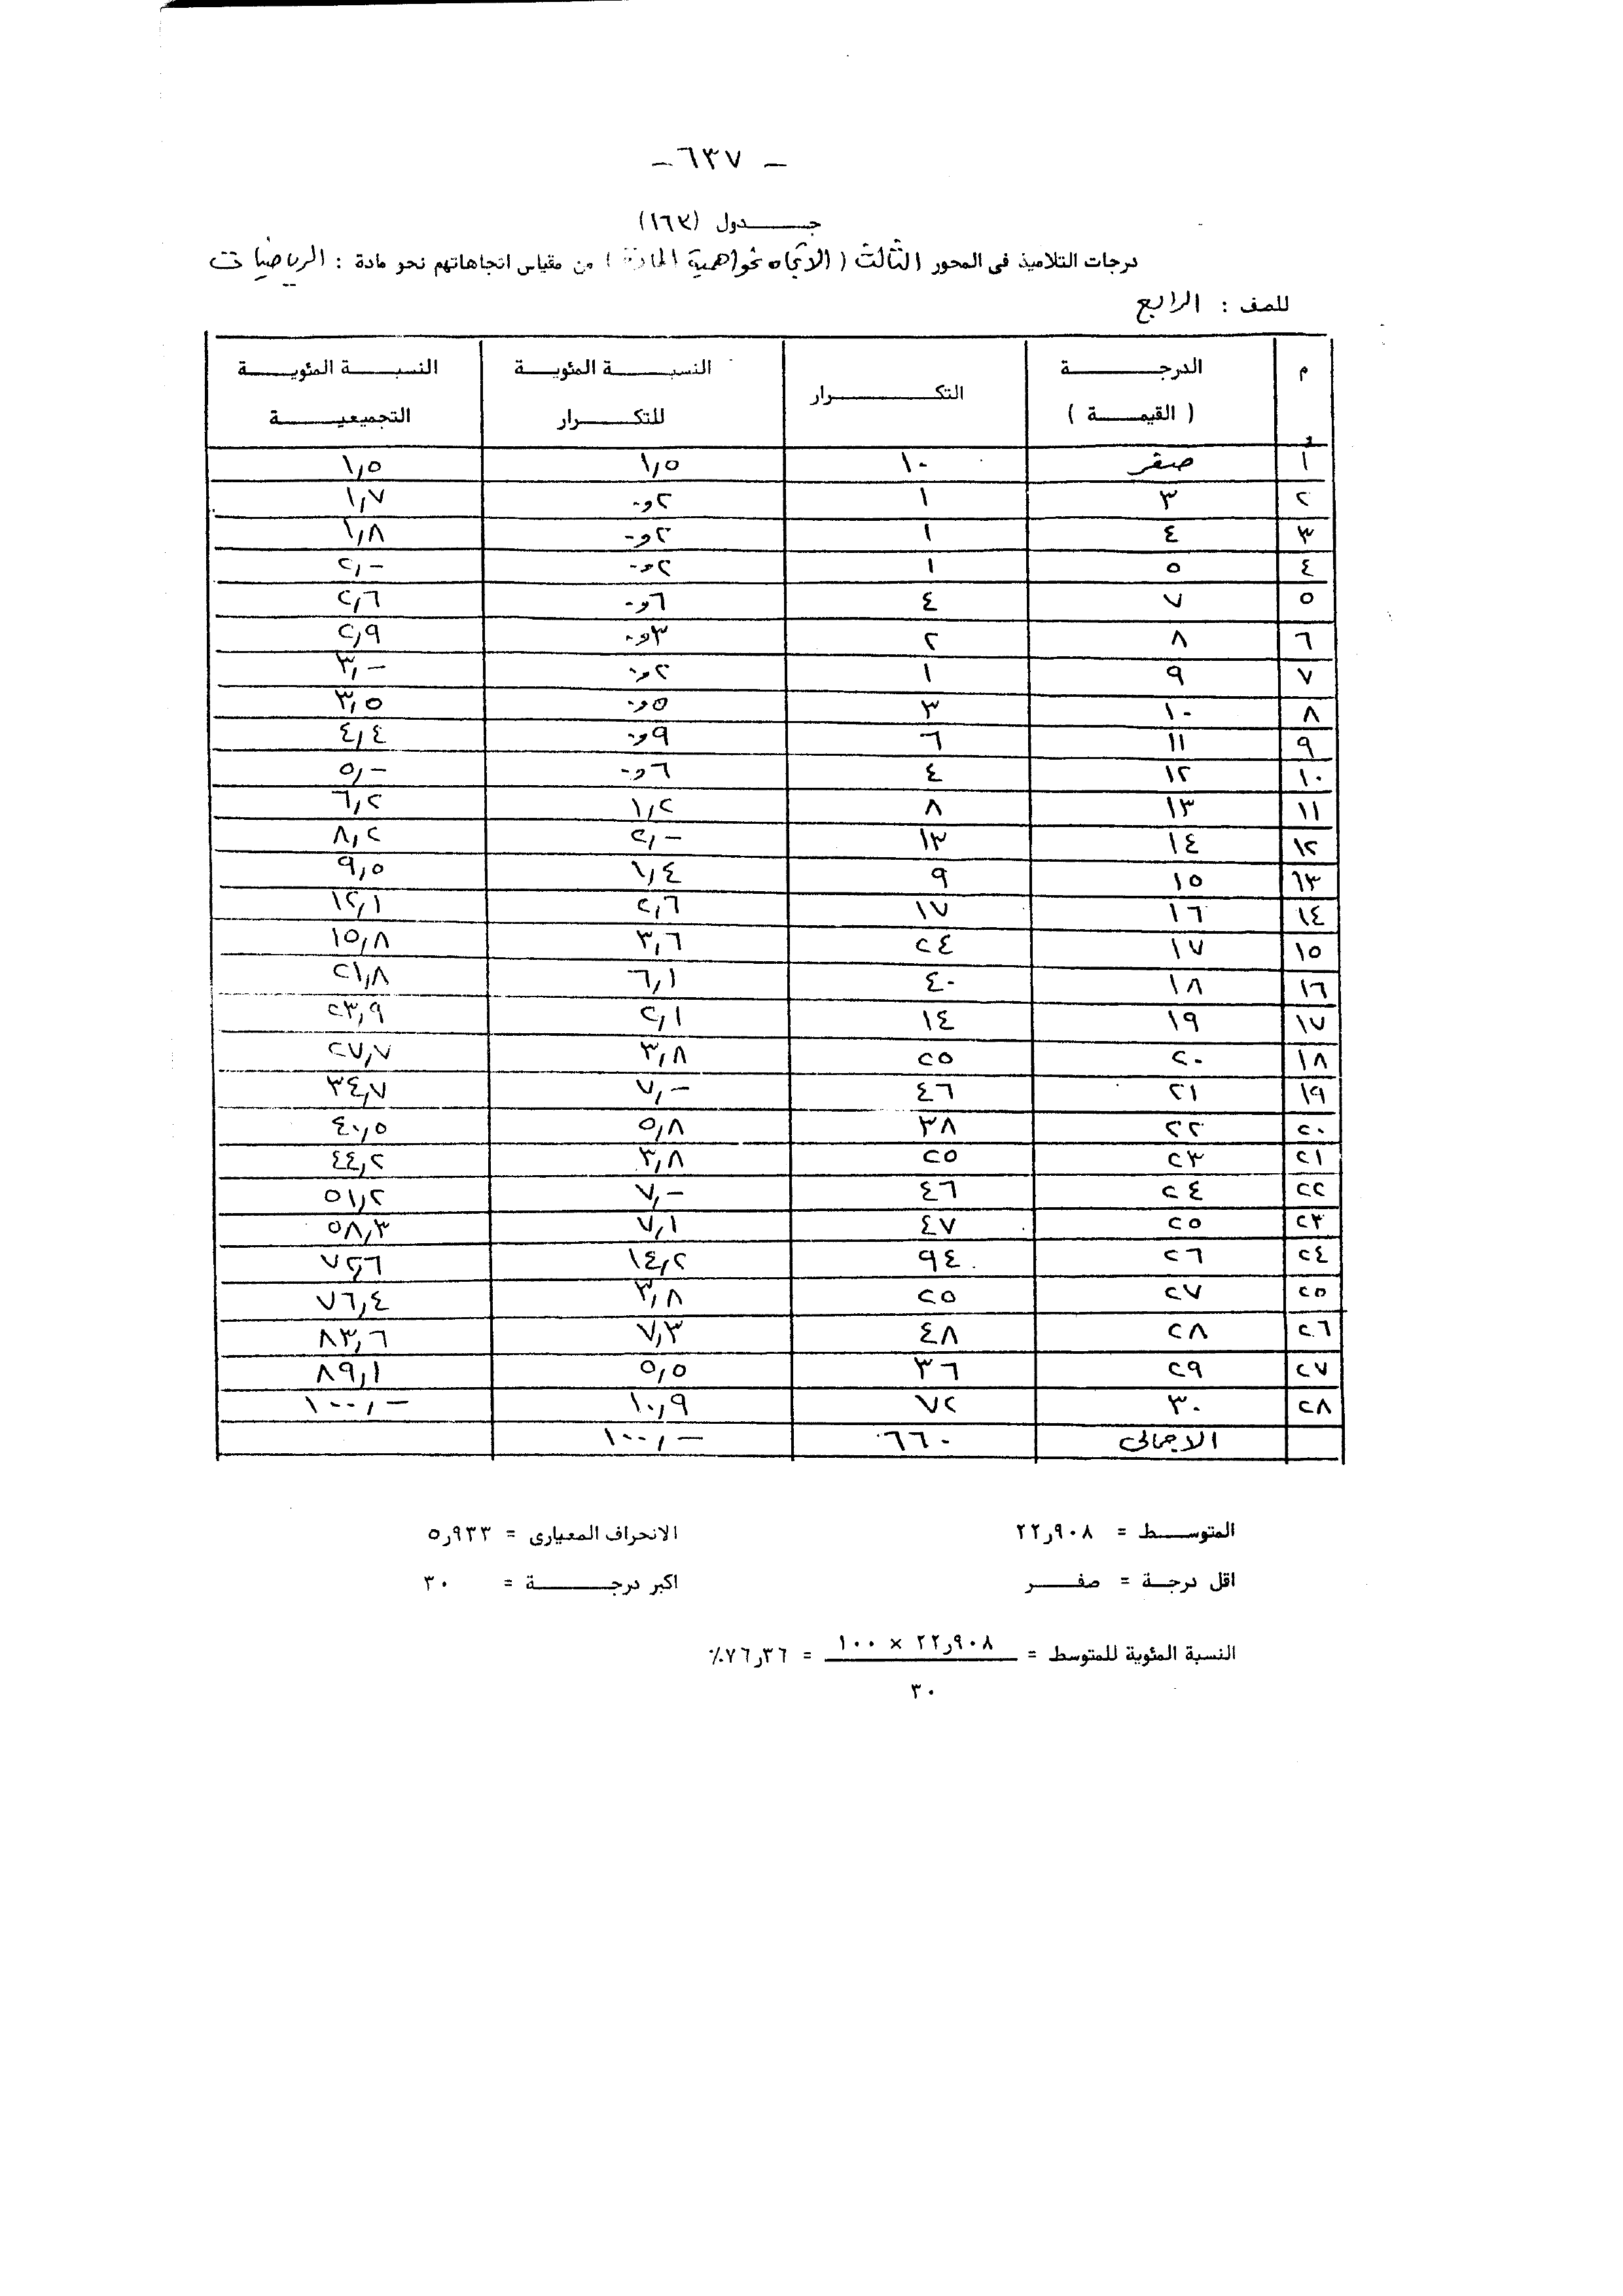 - ٦٣٧ -
جــــدول (١٦٣)
درجات التلاميذ فى المحور الثالث ( الاتجاه نحو اهمية المادة ) من مقياس اتجاهاتهم نحو مادة : الرياضيات
للصف : الرابع
م الدرجـــــة ( القيمـــة ) التكـــــرار النسبـــة المئويـــة للتكـــرار النسبـــة المئويـــة التجميعيـــة
١ صفر ١٠ ١,٥ ١,٥
٢ ٣ ١ ٢و٠ ١,٧
٣ ٤ ١ ٢و٠ ١,٨
٤ ٥ ١ ٢و٠ ٢,-
٥ ٧ ٤ ٦و٠ ٢,٦
٦ ٨ ٢ ٣و٠ ٢,٩
٧ ٩ ١ ٢و٠ ٣,-
٨ ١٠ ٣ ٥و٠ ٣,٥
٩ ١١ ٦ ٩و٠ ٤,٤
١٠ ١٢ ٤ ٦و٠ ٥,-
١١ ١٣ ٨ ١,٢ ٦,٢
١٢ ١٤ ١٣ ٢,- ٨,٢
١٣ ١٥ ٩ ١,٤ ٩,٥
١٤ ١٦ ١٧ ٢,٦ ١٢,١
١٥ ١٧ ٢٤ ٣,٦ ١٥,٨
١٦ ١٨ ٤٠ ٦,١ ٢١,٨
١٧ ١٩ ١٤ ٢,١ ٢٣,٩
١٨ ٢٠ ٢٥ ٣,٨ ٢٧,٧
١٩ ٢١ ٤٦ ٧,- ٣٤,٧
٢٠ ٢٢ ٣٨ ٥,٨ ٤٠,٥
٢١ ٢٣ ٢٥ ٣,٨ ٤٤,٢
٢٢ ٢٤ ٤٦ ٧,- ٥١,٢
٢٣ ٢٥ ٤٧ ٧,١ ٥٨,٣
٢٤ ٢٦ ٩٤ ١٤,٢ ٧٢,٦
٢٥ ٢٧ ٢٥ ٣,٨ ٧٦,٤
٢٦ ٢٨ ٤٨ ٧,٣ ٨٣,٦
٢٧ ٢٩ ٣٦ ٥,٥ ٨٩,١
٢٨ ٣٠ ٧٢ ١٠,٩ ١٠٠,-
الاجمالى ٦٦٠ ١٠٠,-
المتوســـط = ٩٠٨ر٢٢ الانحراف المعيارى = ٩٣٣ر٥
اقل درجـة = صفـــر اكبر درجـــــة = ٣٠
النسبة المئوية للمتوسط = ٩٠٨ر٢٢ × ١٠٠ = ٣٦ر٧٦٪
٣٠